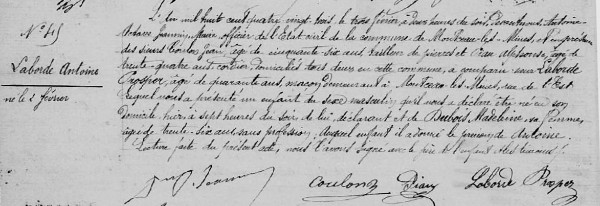 N° 45
Laborde Antoine
né le 2 février
L'an mil huit cent quatre vingt trois, le trois février, à deux heures du soir, Pardevant nous, Antoine
Jeannin, Maire, officier de l'Etat civil de la commune de Montceau-les-Mines, et en présence
des sieurs Jean, âgé de cinquante six ans, tailleur de pierres et Diau âgé de
trente quatre ans domiciliés tous deux en cette commune, a comparu Laborde
Prosper, âgé de quarante ans, maçon demeurant à Montceau-les-Mines, rue de l'Est
Lequel nous a présenté un enfant du sexe masculin, qu'il nous a déclaré être né en son
domicile hier, à sept heures du soir, de lui, déclarant et de Dubois Madeleine, sa femme,
âgée de trente-six ans, sans profession, auquel enfant il a donné le prénom de Antoine.
Lecture faite du présent acte, nous l'avons signé avec le père de l'enfant et les témoins.
Coulon Diau Laborde Prosper